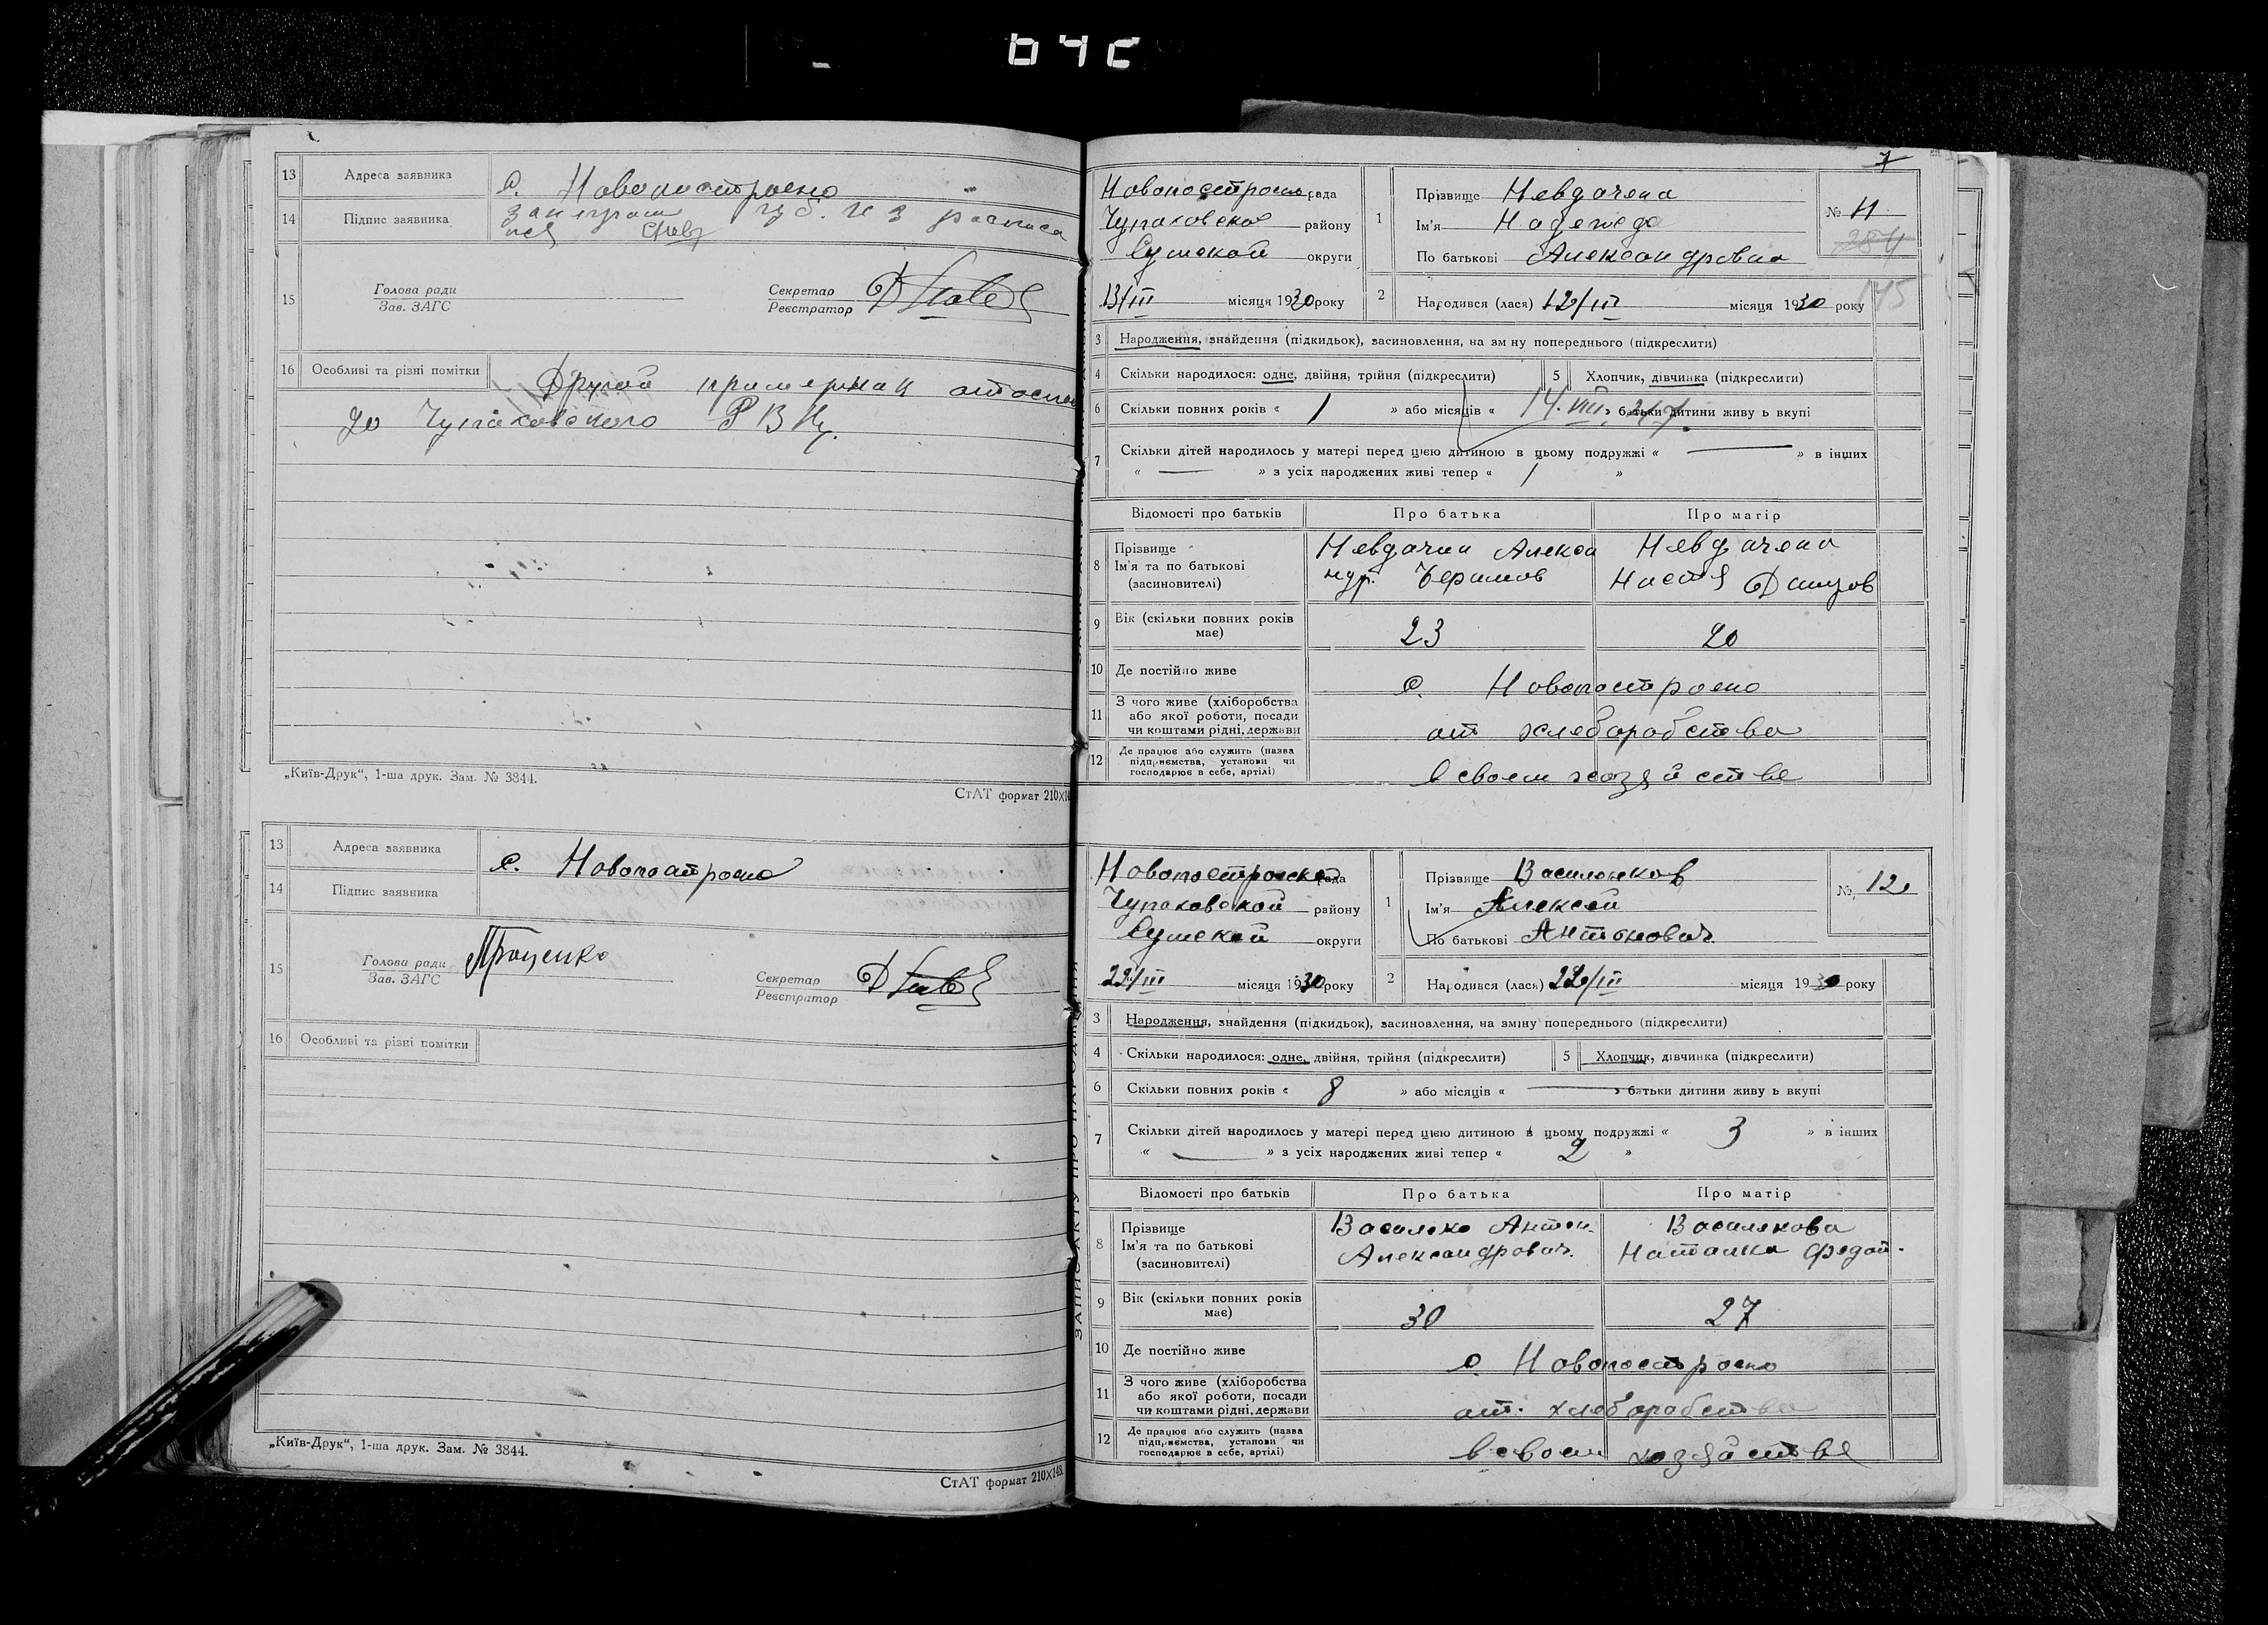 13 Адреса заявника с. Новопостроено
14 Підпис заявника
15 Голова ради Секретар
Зав. ЗАГС Реєстратор
16 Особливі та різні помітки Другой
до Чупаховского РВК
„Київ-Друк“, 1-ша друк. Зам. № 3844.
СтАТ формат 210Х14
13 Адреса заявника с. Новопостроено
14 Підпис заявника
15 Голова ради Проценко Секретар
Зав. ЗАГС Реєстратор
16 Особливі та різні помітки
„Київ-Друк“, 1-ша друк. Зам. № 3844.
СтАТ формат 210Х148
7
рада 1 Прізвище Невдачена № 11
району Ім'я Надежда 284
Сумской округи По батькові Александровна
13/III місяця 1930 року 2 Народився (лася) 12/III місяця 1930 року 145
3 Народження, знайдення (підкидьок), засиновлення, на зм ну попереднього (підкреслити)
4 Скільки народилося: одне, двійня, трійня (підкреслити) 5 Хлопчик, дівчинка (підкреслити)
6 Скільки повних років « 1 » або місяців « » батьки дитини живу ь вкупі
7 Скільки дітей народилось у матері перед цією дитиною в цьому подружжі « — » в інших
« — » з усіх народжених живі тепер « 1 »
Відомості про батьків Про батька Про матір
8 Прізвище Невдачин Алексан Невдачена
Ім'я та по батькові ндр. Настя
(засиновителі)
9 Вік (скільки повних років 23 20
має)
10 Де постійно живе с. Новопостроено
11 З чого живе (хліборобства
або якої роботи, посади от хлеборобства
чи коштами рідні, держави
12 Де працює або служить (назва
підприємства, установи чи в своем хозяйстве
господарює в себе, артілі)
ЗАПИС АКТУ ПРО НАРОДЖЕННЯ
рада 1 Прізвище Васильков № 12
Чупаховской району Ім'я Алексей
Сумской округи По батькові Антонович
22/III місяця 1930 року 2 Народився (лася) 22/III місяця 1930 року
3 Народження, знайдення (підкидьок), засиновлення, на зміну попереднього (підкреслити)
4 Скільки народилося: одне, двійня, трійня (підкреслити) 5 Хлопчик, дівчинка (підкреслити)
6 Скільки повних років « 8 » або місяців « — » батьки дитини живу ь вкупі
7 Скільки дітей народилось у матері перед цією дитиною в цьому подружжі « 3 » в інших
« — » з усіх народжених живі тепер « 2 »
Відомості про батьків Про батька Про матір
8 Прізвище Антон
Ім'я та по батькові Александрович Наталка
(засиновителі)
9 Вік (скільки повних років 30 27
має)
10 Де постійно живе с. Новопостроено
11 З чого живе (хліборобства
або якої роботи, посади от хлеборобства
чи коштами рідні, держави
12 Де працює або служить (назва
підприємства, установи чи в своем хозяйстве
господарює в себе, артілі)